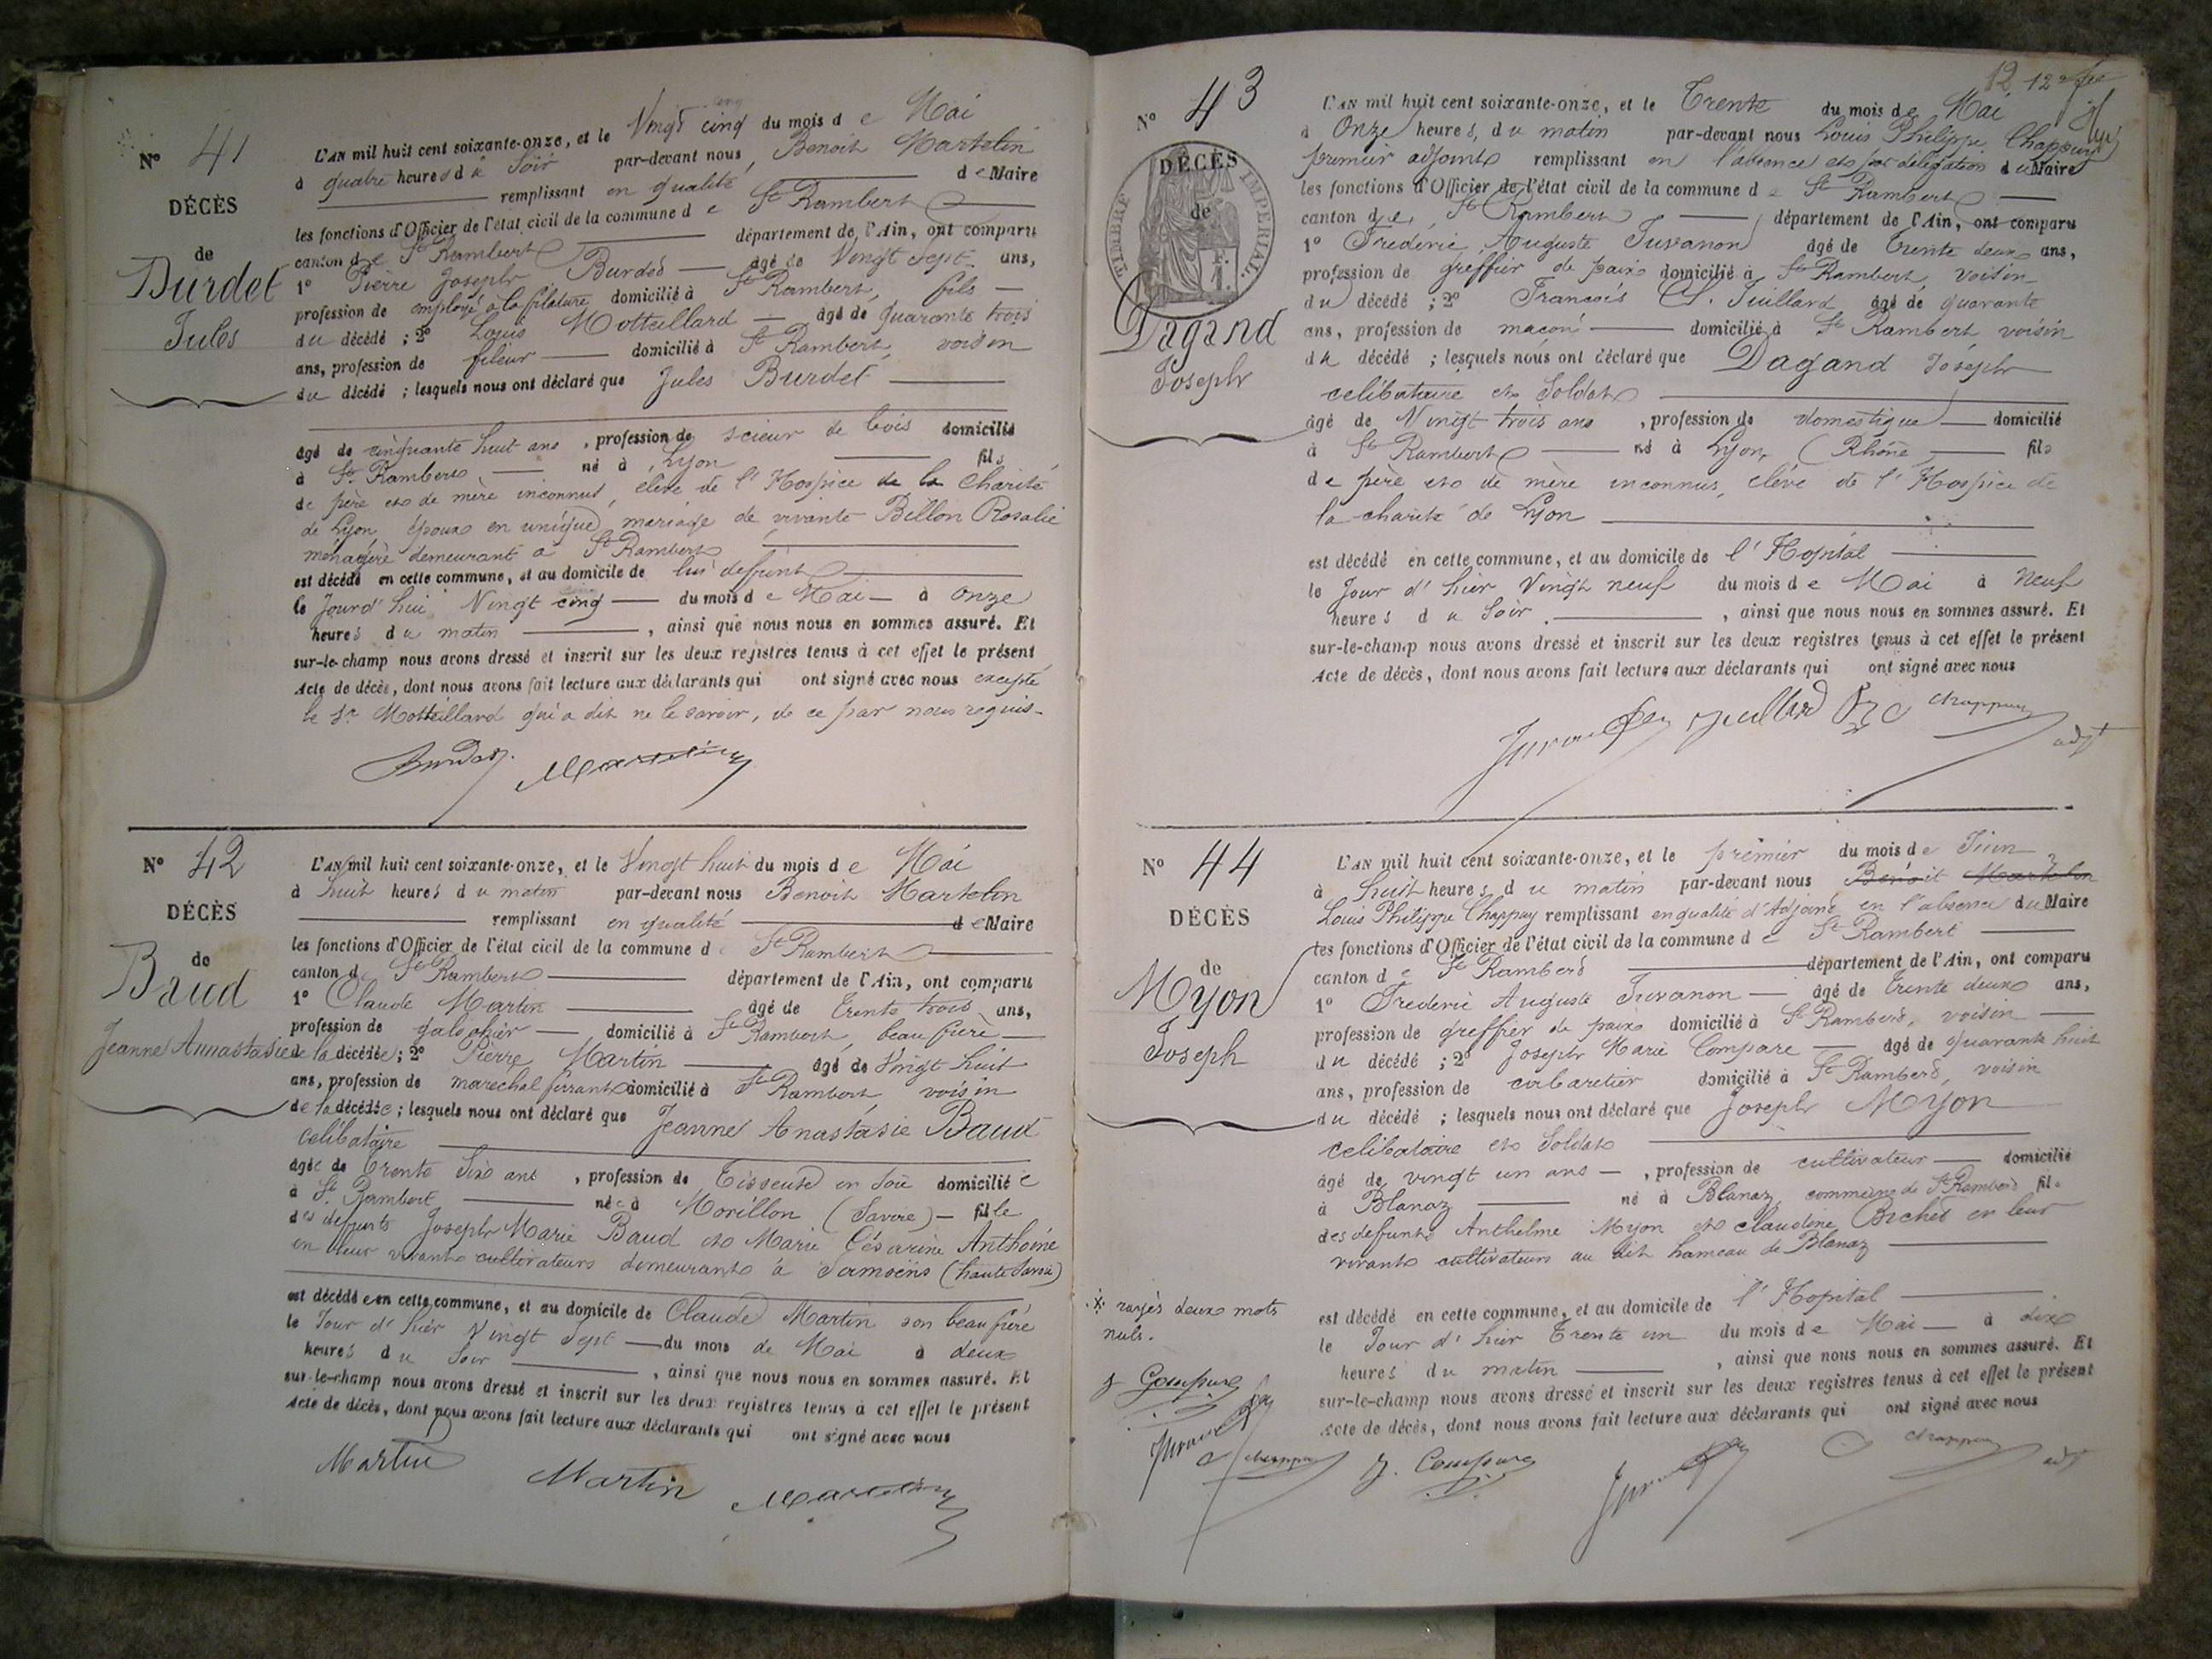 N° 41
DÉCÈS
de
Burdet
Jules
L'AN mil huit cent soixante-onze, et le Vingt cinq du mois de Mai
à quatre heures du Soir par-devant nous Benoit Martelin
remplissant en qualité de Maire
les fonctions d'Officier de l'état civil de la commune de St Rambert
canton de St Rambert département de l'Ain, ont comparu
1° Pierre Joseph Burdet âgé de Vingt Sept ans,
profession de employé à la filature domicilié à St Rambert, fils
du décédé ; 2° Louis Mottellard âgé de quarante trois
ans, profession de fileur domicilié à St Rambert, voisin
du décédé ; lesquels nous ont déclaré que Jules Burdet
âgé de cinquante huit ans, profession de scieur de bois domicilié
à St Rambert né à Lyon fils
de père et de mère inconnus, élève de l'Hospice de la Charité
de Lyon, époux en unique mariage de vivante Billon Rosalie
ménagère demeurant à St Rambert
est décédé en cette commune, et au domicile de lui défunt
le Jourd'hui Vingt cinq du mois de Mai à onze
heures du matin, ainsi que nous nous en sommes assuré. Et
sur-le-champ nous avons dressé et inscrit sur les deux registres tenus à cet effet le présent
Acte de décès, dont nous avons fait lecture aux déclarants qui ont signé avec nous excepté
le Sr Mottellard qui a dit ne le savoir, de ce par nous requis.
Burdet Martelin
N° 42
DÉCÈS
de
Baud
Jeanne Annastasie
L'AN mil huit cent soixante-onze, et le Vingt huit du mois de Mai
à huit heures du matin par-devant nous Benoit Martelin
remplissant en qualité de Maire
les fonctions d'Officier de l'état civil de la commune de St Rambert
canton de St Rambert département de l'Ain, ont comparu
1° Claude Martin âgé de trente trois ans,
profession de galochier domicilié à St Rambert, beau frère
de la décédée ; 2° Pierre Martin âgé de Vingt huit
ans, profession de marechal ferrant domicilié à St Rambert voisin
de la décédée ; lesquels nous ont déclaré que Jeanne Anastasie Baud
celibataire
âgée de trente Six ans, profession de Tisseuse en Soie domiciliée
à St Rambert née à Morillon (Savoie) fille
des defunts Joseph Marie Baud et Marie Césarine Anthoine
en leur vivants cultivateurs demeurants à Samoëns (haute Savoie)
est décédée en cette commune, et au domicile de Claude Martin son beau frère
le Jour d'hier Vingt Sept du mois de Mai à deux
heures du Soir, ainsi que nous nous en sommes assuré. Et
sur-le-champ nous avons dressé et inscrit sur les deux registres tenus à cet effet le présent
Acte de décès, dont nous avons fait lecture aux déclarants qui ont signé avec nous
Martin Martin Martelin
12 12
N° 43
DÉCÈS
de
TIMBRE IMPERIAL.
Dagand
Joseph
L'AN mil huit cent soixante-onze, et le Trente du mois de Mai
à Onze heures, du matin par-devant nous Louis Philippe Chappuy
premier adjoint remplissant en l'absence et par délégation du Maire
les fonctions d'Officier de l'état civil de la commune de St Rambert
canton de St Rambert département de l'Ain, ont comparu
1° Frederic Auguste Juvanon âgé de trente deux ans,
profession de greffier de paix domicilié à St Rambert, voisin
du décédé ; 2° François Juillard âgé de quarante
ans, profession de maçon domicilié à St Rambert voisin
du décédé ; lesquels nous ont déclaré que Dagand Joseph
celibataire et Soldat
âgé de Vingt trois ans, profession de domestique domicilié
à St Rambert né à Lyon, (Rhône fils
de père et de mère inconnus, élève de l'Hospice de
la charité de Lyon
est décédé en cette commune, et au domicile de l'Hopital
le Jour d'hier Vingt neuf du mois de Mai à Neuf
heures du Soir, ainsi que nous nous en sommes assuré. Et
sur-le-champ nous avons dressé et inscrit sur les deux registres tenus à cet effet le présent
Acte de décès, dont nous avons fait lecture aux déclarants qui ont signé avec nous
Juillard Chappuy
adjt
N° 44
DÉCÈS
de
Myon
Joseph
L'AN mil huit cent soixante-onze, et le premier du mois de Juin
à huit heures du matin par-devant nous Benoit Martelin
Louis Philippe Chappuy remplissant en qualité d'Adjoint en l'absence du Maire
les fonctions d'Officier de l'état civil de la commune de St Rambert
canton de St Rambert département de l'Ain, ont comparu
1° Frederic Auguste Juvanon âgé de trente deux ans,
profession de greffier de paix domicilié à St Rambert, voisin
du décédé ; 2° Joseph Marie Compare âgé de quarante huit
ans, profession de cabaretier domicilié à St Rambert, voisin
du décédé ; lesquels nous ont déclaré que Joseph Myon
celibataire et Soldat
âgé de vingt un ans, profession de cultivateur domicilié
à Blanaz né à Blanaz, commune de St Rambert fils
des defunts Anthelme Myon et Claudine Bichet en leur
vivants cultivateurs au dit hameau de Blanaz
est décédé en cette commune, et au domicile de l'Hopital
le Jour d'hier Trente un du mois de Mai à dix
heures du matin, ainsi que nous nous en sommes assuré. Et
sur-le-champ nous avons dressé et inscrit sur les deux registres tenus à cet effet le présent
Acte de décès, dont nous avons fait lecture aux déclarants qui ont signé avec nous
rayés deux mots
nuls.
J Compare
Chappuy
J. Compare
Chappuy
adjt